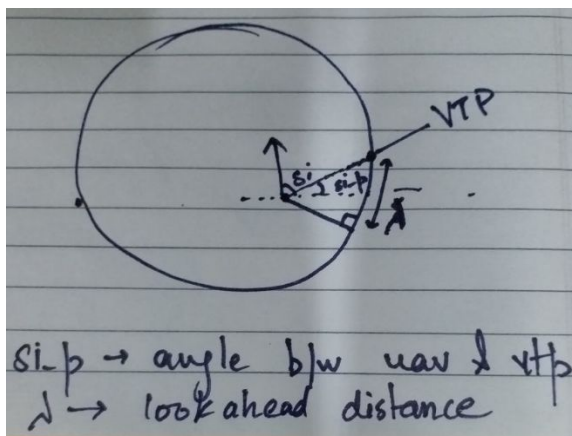 VTP
si
si-p
λ
si-p → angle b/w uav & vtp
λ → lookahead distance